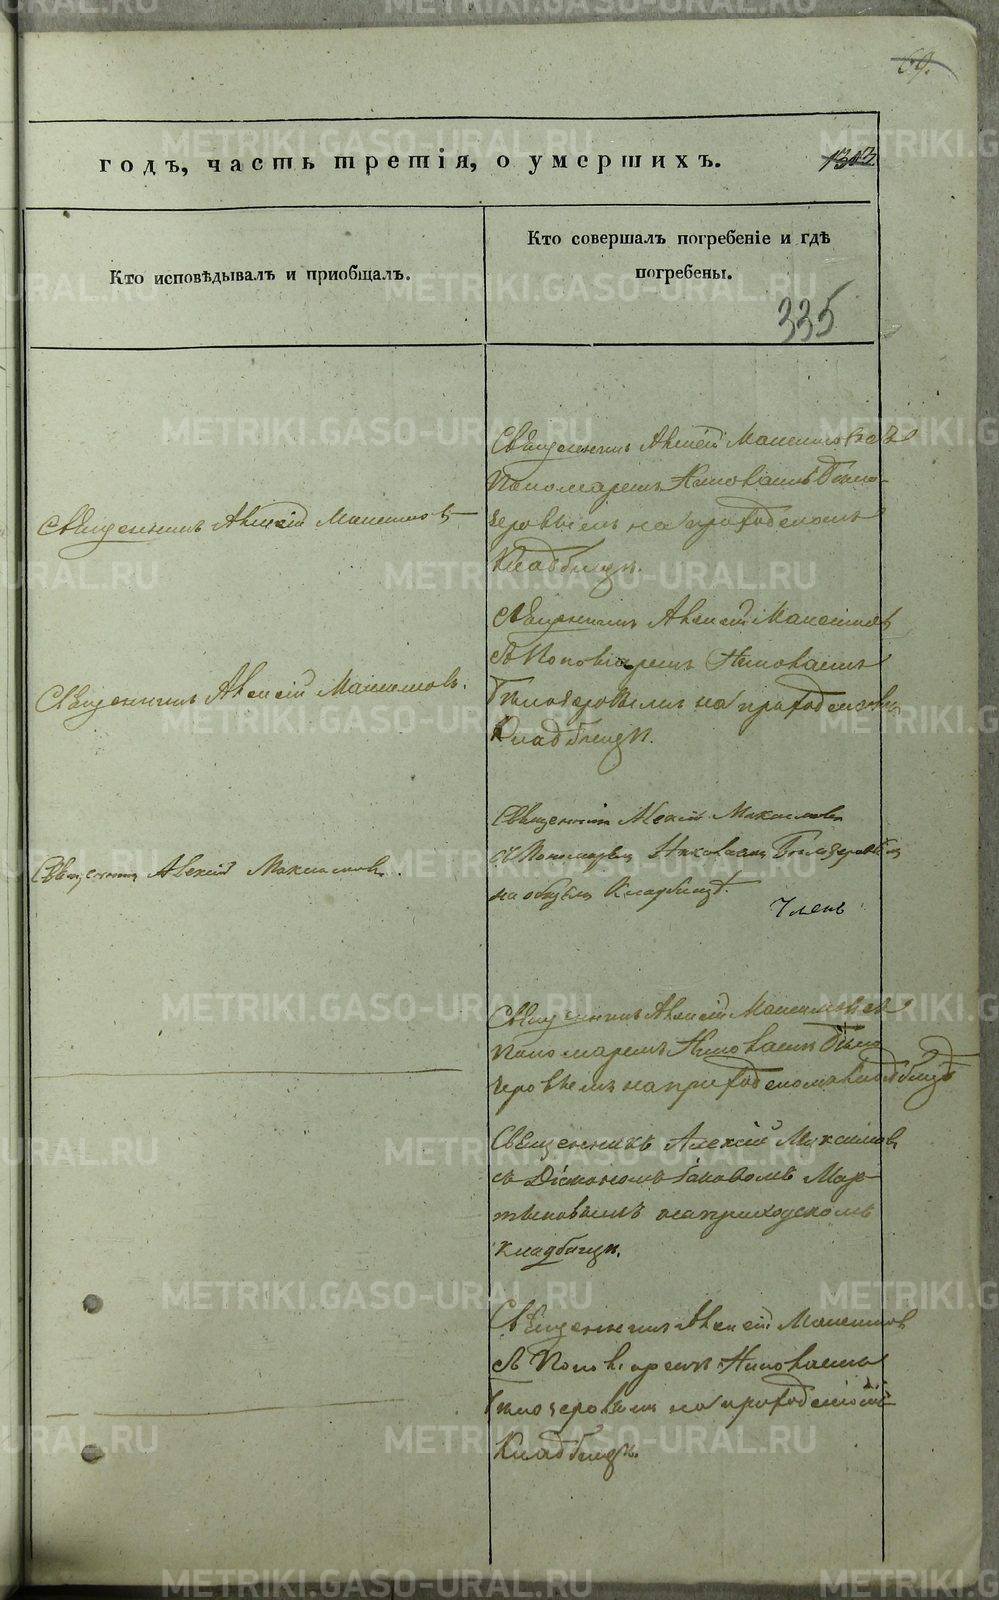 69.
годъ, часть третія, о умершихъ.
1303
Кто исповѣдывалъ и приобщалъ.
Кто совершалъ погребеніе и гдѣ
погребены.
335
Священникъ Алексій Максимовъ
Священникъ Алексій Максимовъ съ
Пономаремъ Николаемъ Бѣло-
зеровымъ на приходскомъ
Кладбищѣ.
Священникъ Алексій Максимовъ.
Священникъ Алексій Максимовъ
съ Пономаремъ Николаемъ
Бѣлозеровымъ на приходскомъ
Кладбищѣ.
Священникъ Алексій Максимовъ.
Священникъ Алексій Максимовъ
съ Пономаремъ Николаемъ Бѣлозеровымъ
на общемъ Кладбищѣ.
Членъ
Священникъ Алексій Максимовъ съ
Пономаремъ Николаемъ Бѣло
зеровымъ на приходскомъ Кладбищѣ
Священникъ Алексій Максимовъ
съ Діакономъ Мар-
на приходскомъ
кладбищѣ.
Священникъ Алексій Максимовъ
съ Пономаремъ Николаемъ
Бѣлозеровымъ на приходскомъ
Кладбищѣ.
METRIKI.GASO-URAL.RU